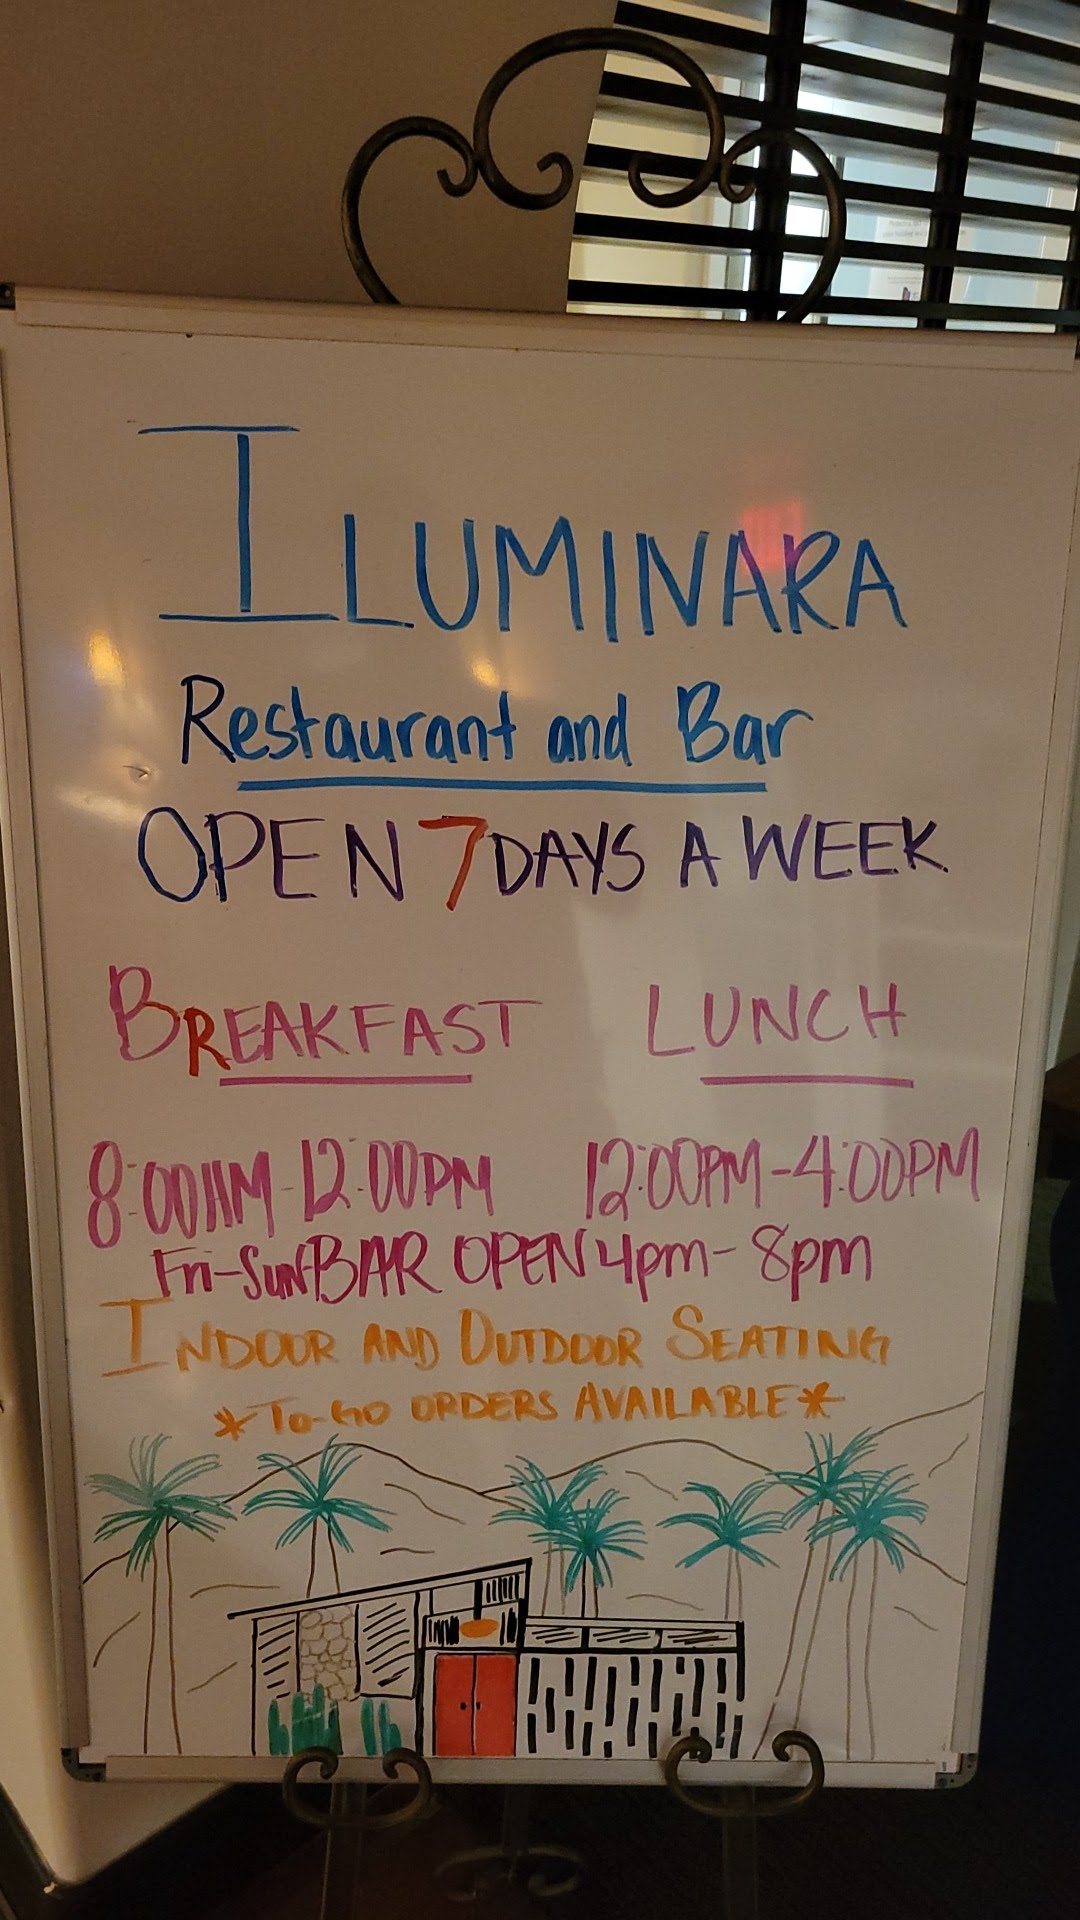 ILUMINARA
Restaurant and Bar
OPEN 7 DAYS A WEEK
BREAKFAST LUNCH
8:00AM-12:00PM 12:00PM-4:00PM
Fri-Sun BAR OPEN 4pm-8pm
INDOOR AND OUTDOOR SEATING
*TO-GO ORDERS AVAILABLE*